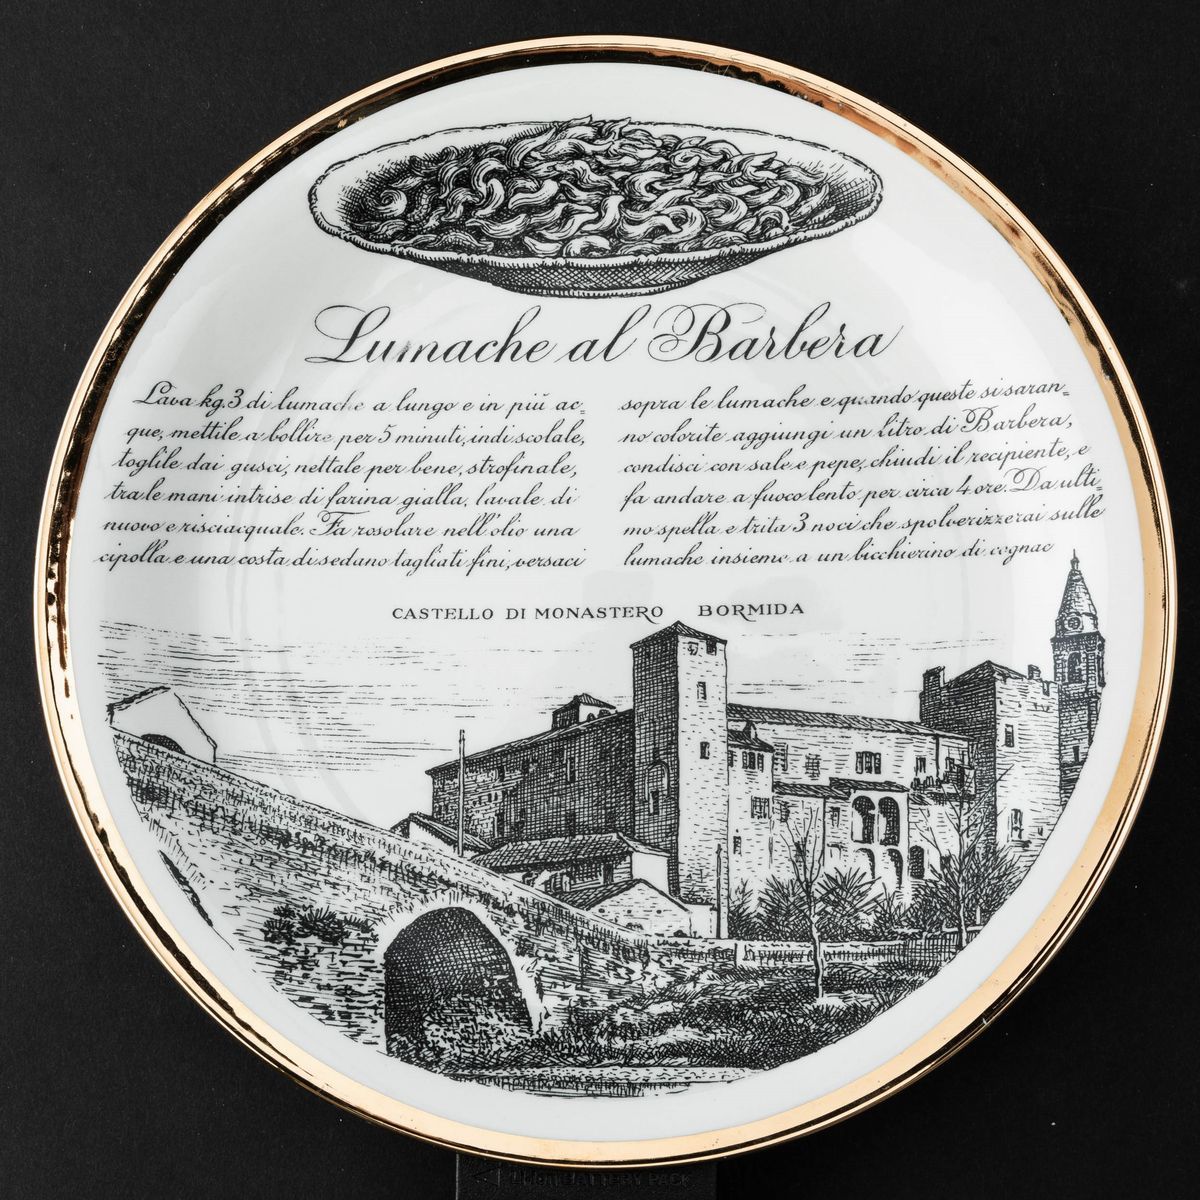 Lumache al Barbera
Lava kg.3 di lumache a lungo e in più ac=
que, mettile a bollire per 5 minuti, indi scolale,
toglile dai gusci, nettale per bene, strofinale,
tra le mani intrise di farina gialla, lavale di
nuovo e risciacquale. Fa rosolare nell'olio una
cipolla e una costa di sedano tagliati fini, versaci
sopra le lumache e quando queste si saran=
no colorite aggiungi un litro di Barbera,
condisci con sale e pepe, chiudi il recipiente, e
fa andare a fuoco lento per circa 4 ore. Da ulti=
mo spella e trita 3 noci che spolverizzerai sulle
lumache insieme a un bicchierino di cognac
CASTELLO DI MONASTERO BORMIDA
BATTERY PACK